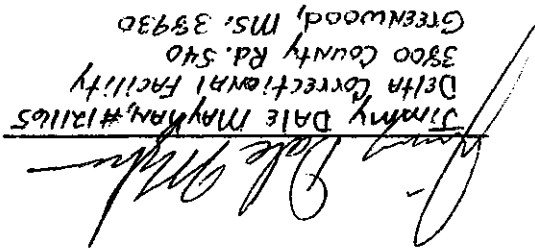 Jimmy Dale Mayhan
Jimmy DALE MAYHAN, #121165
Delta Correctional Facility
3800 County Rd. 540
Greenwood, MS. 38930